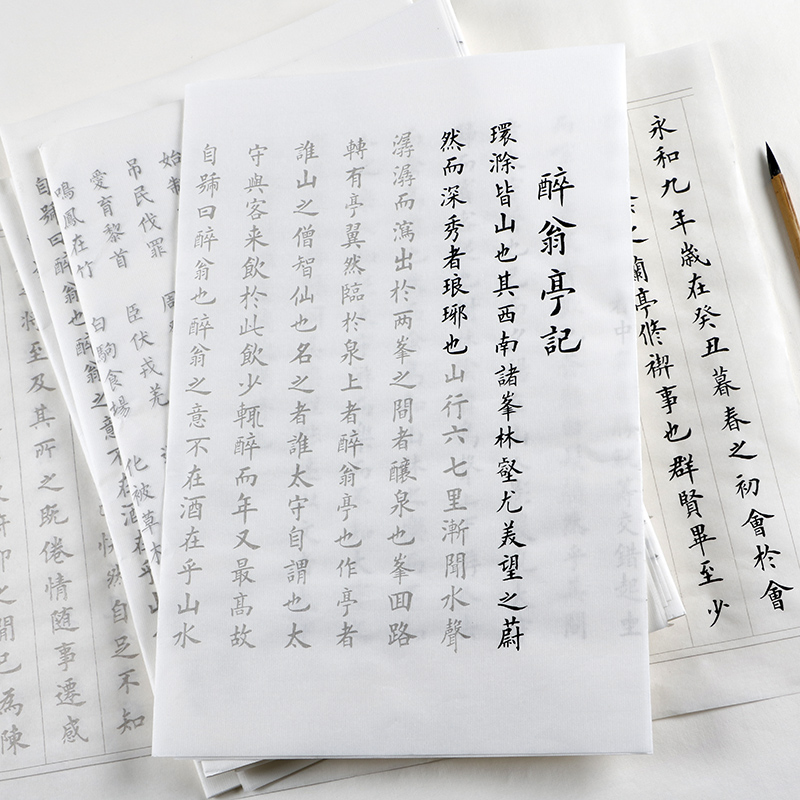 醉翁亭記
環滁皆山也其西南諸峯林壑尤美望之蔚
然而深秀者琅琊也山行六七里漸聞水聲
潺潺而瀉出於两峯之間者釀泉也峯回路
轉有亭翼然臨於泉上者醉翁亭也作亭者
誰山之僧智仙也名之者誰太守自謂也太
守與客来飲於此飲少輒醉而年又最高故
自號曰醉翁也醉翁之意不在酒在乎山水
永和九年歲在癸丑暮春之初會於會
之蘭亭修禊事也群賢畢至少
始制
吊民伐罪 周
愛育黎首 臣伏戎羌
鳴鳳在竹 白駒食場 化被草木
自號曰醉翁也醉翁之意不在酒在乎山
快然自足不知
將至及其所之既倦情隨事遷感
仰之間已為陳